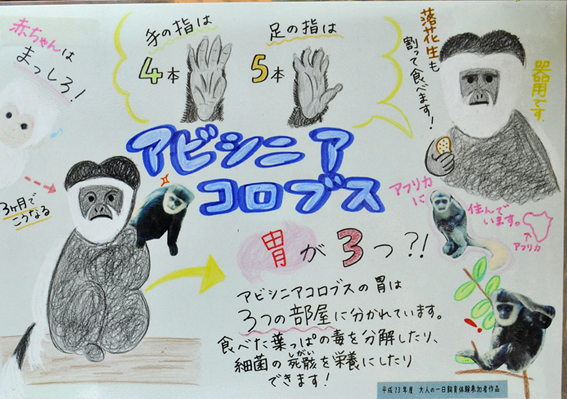 赤ちゃんは
まっしろ！
3ヶ月で
こうなる
手の指は
4本
足の指は
5本
落花生も
割って食べます！
器用です。
アビシニア
コロブス
アフリカに
住んで
います。
アフリカ
胃が3つ?!
アビシニアコロブスの胃は
3つの部屋に分かれています。
食べた葉っぱの毒を分解したり、
細菌の死骸を栄養にしたり
しがい
できます！
平成23年度 大人の一日飼育体験参加者作品